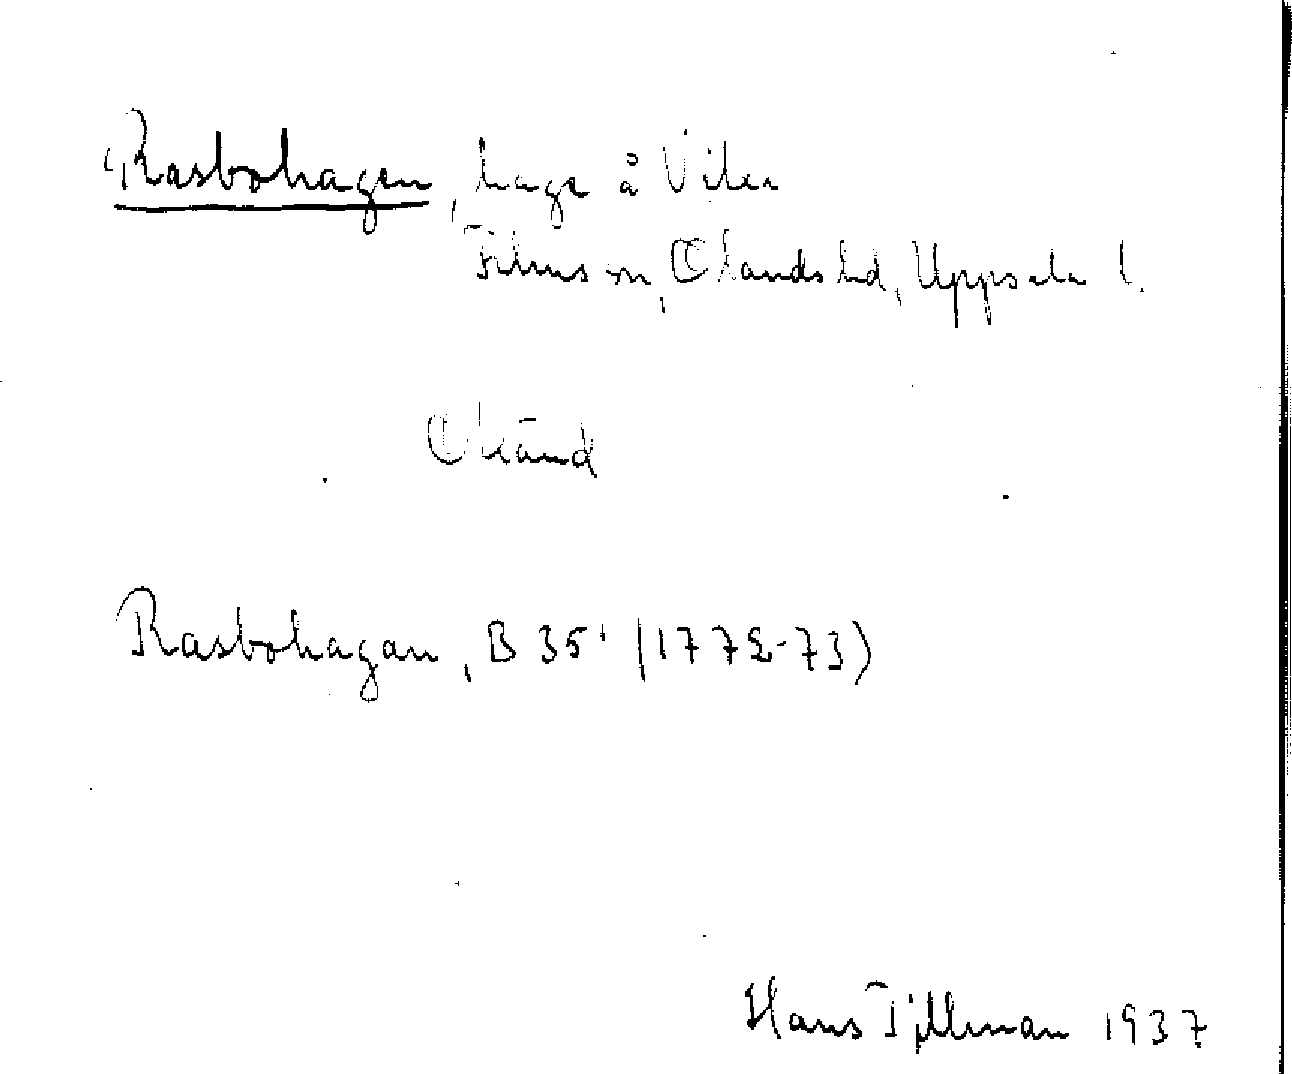 "Rasbohagen, hage å Vika
Films sn, Olands hd, Uppsala l.
Okänd
Rasbohagan, B 35¹ (1772-73)
Hans Tillman 1937